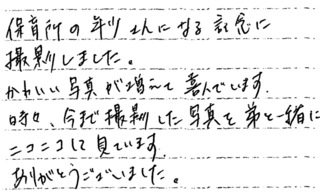 保育所の年少さんになる記念に
撮影しました。
かわいい写真が増えて喜んでいます。
時々、今まで撮影した写真を弟と一緒に
ニコニコして見ています。
ありがとうございました。